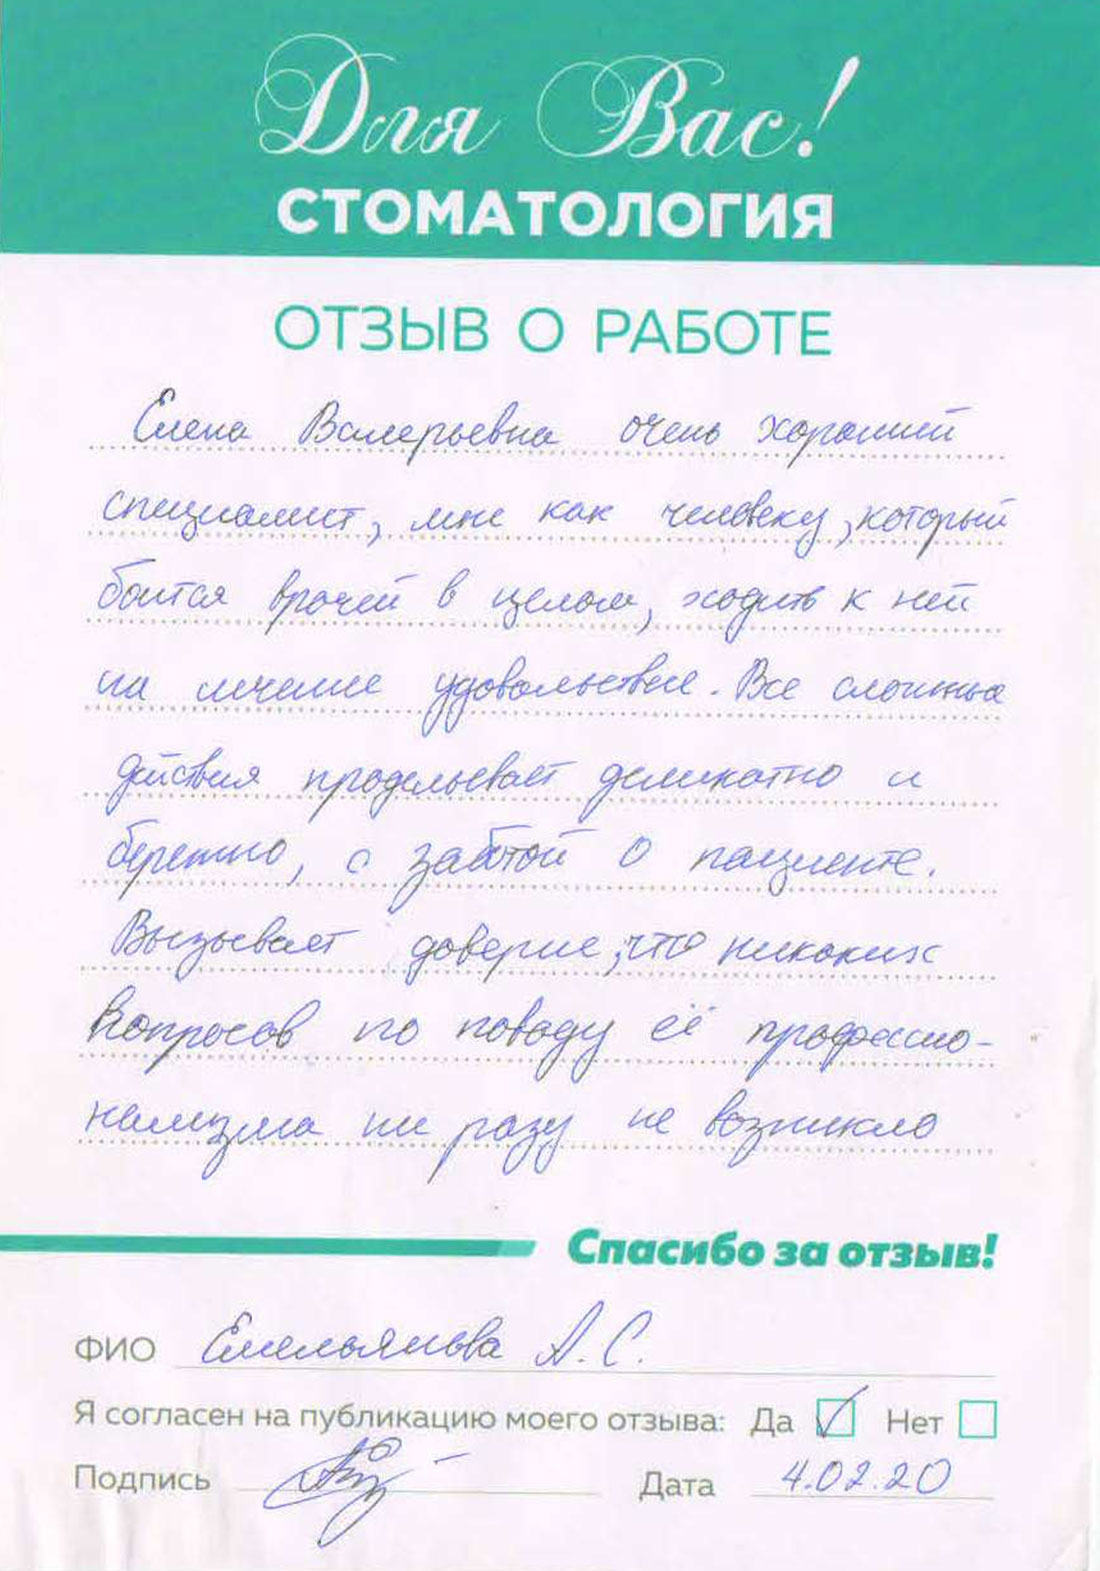 Для Вас!
СТОМАТОЛОГИЯ
ОТЗЫВ О РАБОТЕ
Елена Валерьевна очень хороший
специалист, мне как человеку, который
боится врачей в целом, ходить к ней
на лечение удовольствие. Все сложные
действия проделывает деликатно и
бережно, с заботой о пациенте.
Вызывает доверие, что никаких
вопросов по поводу её профессио-
нализма ни разу не возникло
Спасибо за отзыв!
ФИО Емельянова А.С.
Я согласен на публикацию моего отзыва: Да ✓ Нет
Подпись Дата 4.02.20